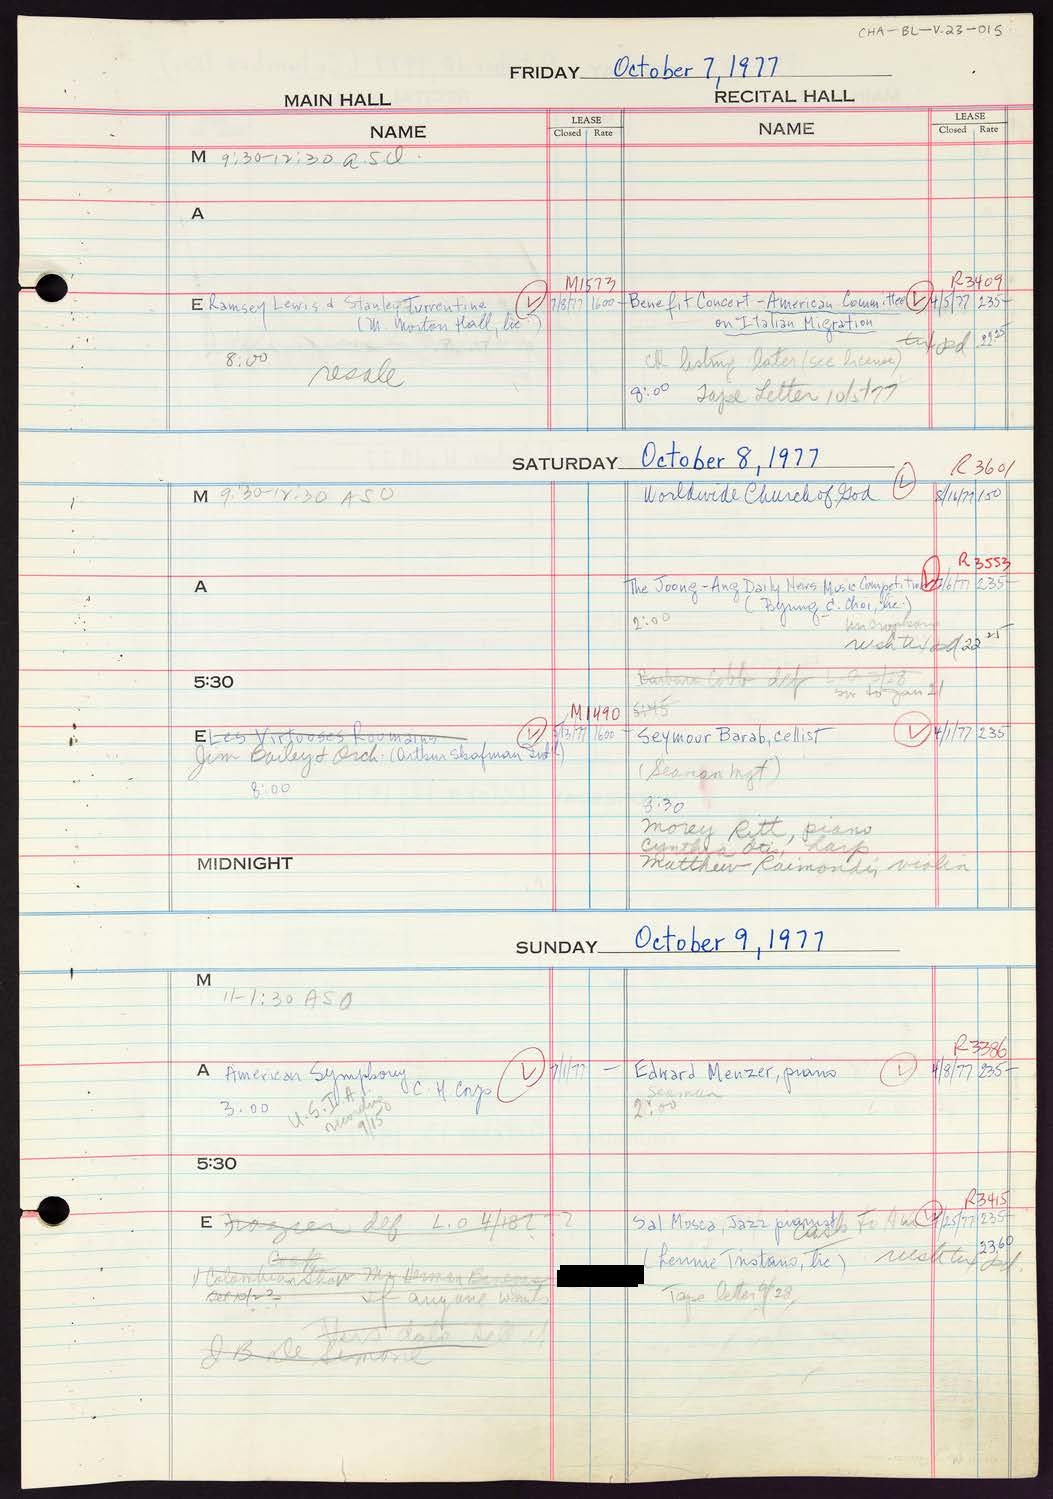 CHA-BL-V.23-015
FRIDAY October 7, 1977
MAIN HALL RECITAL HALL
NAME LEASE Closed Rate NAME LEASE Closed Rate
M 9:30-12:30 ASO
A
M1573 R3409
E Ramsey Lewis & Stanley Turrentine 7/8/77 1600- Benefit Concert - American Committee 4/5/77 235-
(M. Morton Hall, lic.) on Italian Migration
tix pd
8:00 listing later (see license)
resale 8:00 Tape Letter 10/5/77
SATURDAY October 8, 1977
R3601
M 9:30-12:30 ASO Worldwide Church of God 8/16/77 150
R3553
A The Joong-Ang Daily News Music Competition 7/6/77 235-
(Byung C. Choi, lic.)
2:00
rush tix pd 22 25
5:30 Barbara Cobb def L.O 3/28
to Jan 21
M1490 5:45
E Les Virtuoses Roumains 5/13/77 1600- Seymour Barab, cellist 4/1/77 235
Jim Bailey & Orch. (Arthur Shafman Intl)
(Seaman Mgt)
8:00
8:30
Morey Ritt, piano
Cynthia Otis, harp
MIDNIGHT Matthew Raimondi, violin
SUNDAY October 9, 1977
M
11-1:30 ASO
R3386
A American Symphony C.H. Corp 7/1/77 - Edward Menzer, piano 4/8/77 235-
Seaman
3:00 U.S.I.A. 9/15 2:00
5:30
R3415
E Frazier def L.O 4/18 ? ? Sal Mosca, Jazz pianist 4/25/77 235-
cash
(Lennie Tristano, lic) rush tix pd. 23.60
Colombian Show Mr Herman
if anyone wants Tape letter 9/28
this date tell
J B De Simone